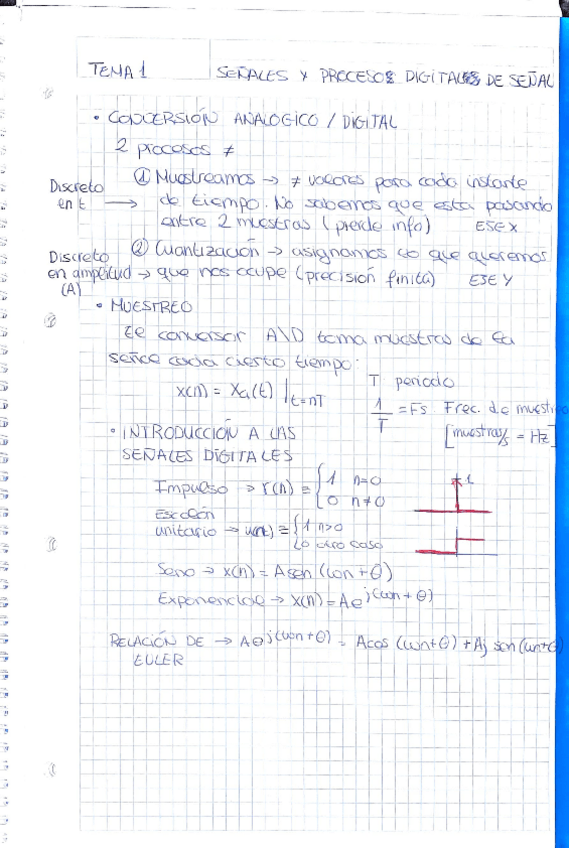 TEMA 1 SEÑALES Y PROCESOS DIGITALES DE SEÑAL
• CONVERSIÓN ANALOGICO / DIGITAL
2 procesos ≠
① Muestreamos → ≠ valores para cada instante
Discreto en t → de tiempo. No sabemos que esta pasando
entre 2 muestras (pierde info) EJE X
② Cuantización → asignamos lo que queremos
Discreto en amplitud (A) → que nos ocupe (precisión finita) EJE Y
• MUESTREO
El conversor A\D toma muestras de la
señal cada cierto tiempo:
x(n) = Xa(t) |t=nT
T periodo
1/T = Fs Frec. de muestreo
[muestras/s = Hz]
• INTRODUCCIÓN A LAS
SEÑALES DIGITALES
Impulso → r(n) = { 1 n=0
0 n≠0
1
Escalón
unitario → u(n) = { 1 n>0
0 otro caso
Seno → x(n) = A sen (ωn + θ)
Exponencial → x(n) = Ae^j(ωn + θ)
RELACIÓN DE → Ae^j(ωn+θ) = Acos (ωn+θ) + Aj sen (ωn+θ)
EULER